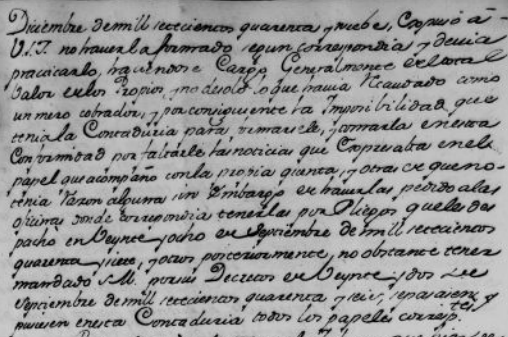 Diciembre de mill setecientos quarenta y nuebe, Expuso â
V.S.Y. no haverla formado segun correspondia y devia
practicarlo, haciendose Cargo Generalmente de el total
Valor de los Propios, y no de solo lo que havia Recaudado como
un mero cobrador, y por consiguiente la Imposibilidad que
tenia la Contaduria para rimarsele, y formarla en esta
Conformidad por faltarle las noticias que Expresaba en el
papel que acompaño con la propia quenta, y otras de que no
tenia razon alguna sin Embargo de haverlas pedido a las
oficinas donde correspondia tenerlas por Pliegos que les des
pachò en Veynte y ocho de Septiembre de mill setecientos
quarenta y siete, y otros posteriormente, no obstante tener
mandado S.M. por sus Decretos de Veynte y dos de
Septiembre de mill setecientos quarenta y seis, se pasasen y
pusiesen en esta Contaduria todos los papeles corresp.tes